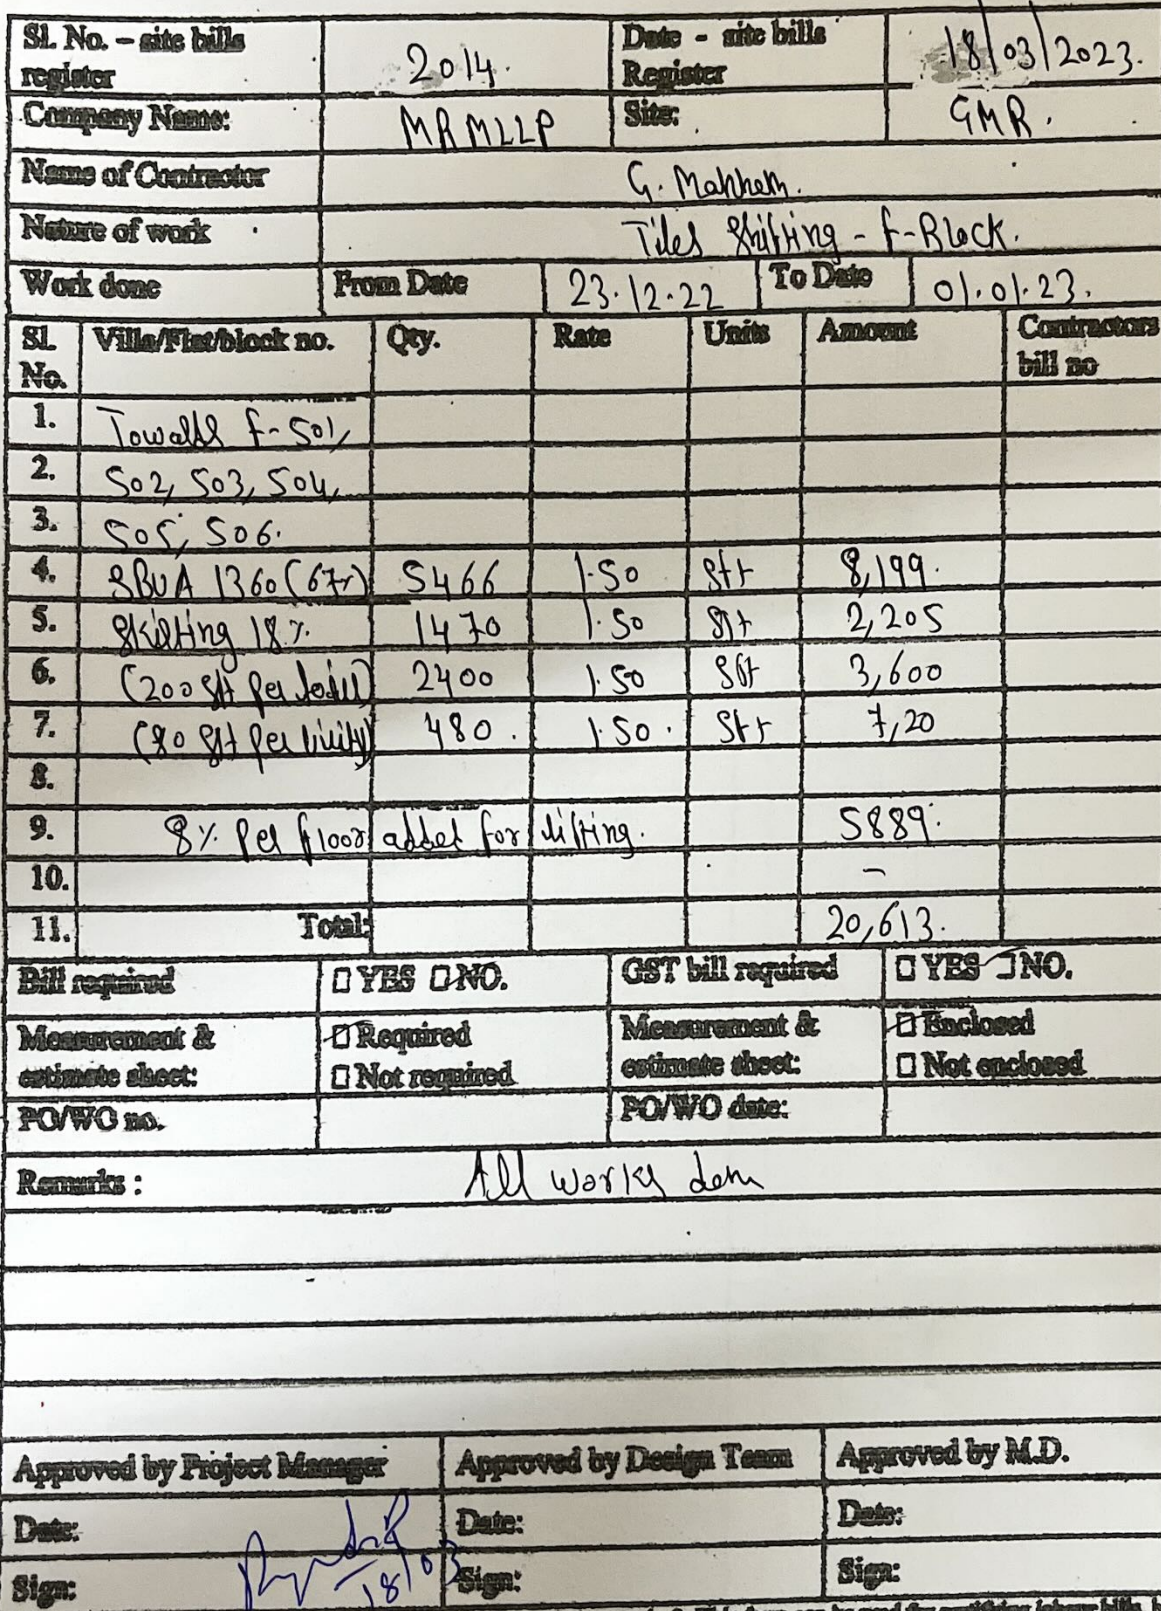 Sl. No. – site bills register 2014. Date - site bills Register 18/03/2023.
Company Name: MRMLLP Site: GMR.
Name of Contractor G.
Nature of work Tiles Shifting - F-Block.
Work done From Date 23.12.22 To Date 01.01.23.
Sl. No. Villa/Flat/block no. Qty. Rate Units Amount Contractors bill no
1. Towards F-501,
2. 502, 503, 504,
3. 505, 506.
4. SBUA 1360 (67%) 5466 1.50 sft 8,199.
5. Skirting 18% 1470 1.50 sft 2,205
6. (200 sft per toilet) 2400 1.50 sft 3,600
7. (80 sft per utility) 480. 1.50. sft 7,20
8.
9. 8% Per floor added for lifting. 5889.
10. -
11. Total: 20,613.
Bill required YES NO. GST bill required YES NO.
Measurement & estimate sheet: Required Not required Measurement & estimate sheet: Enclosed Not enclosed
PO/WO no. PO/WO date:
Remarks : All works done
Approved by Project Manager Approved by Design Team Approved by M.D.
Date: Date: Date:
Sign: 18/03 Sign: Sign: